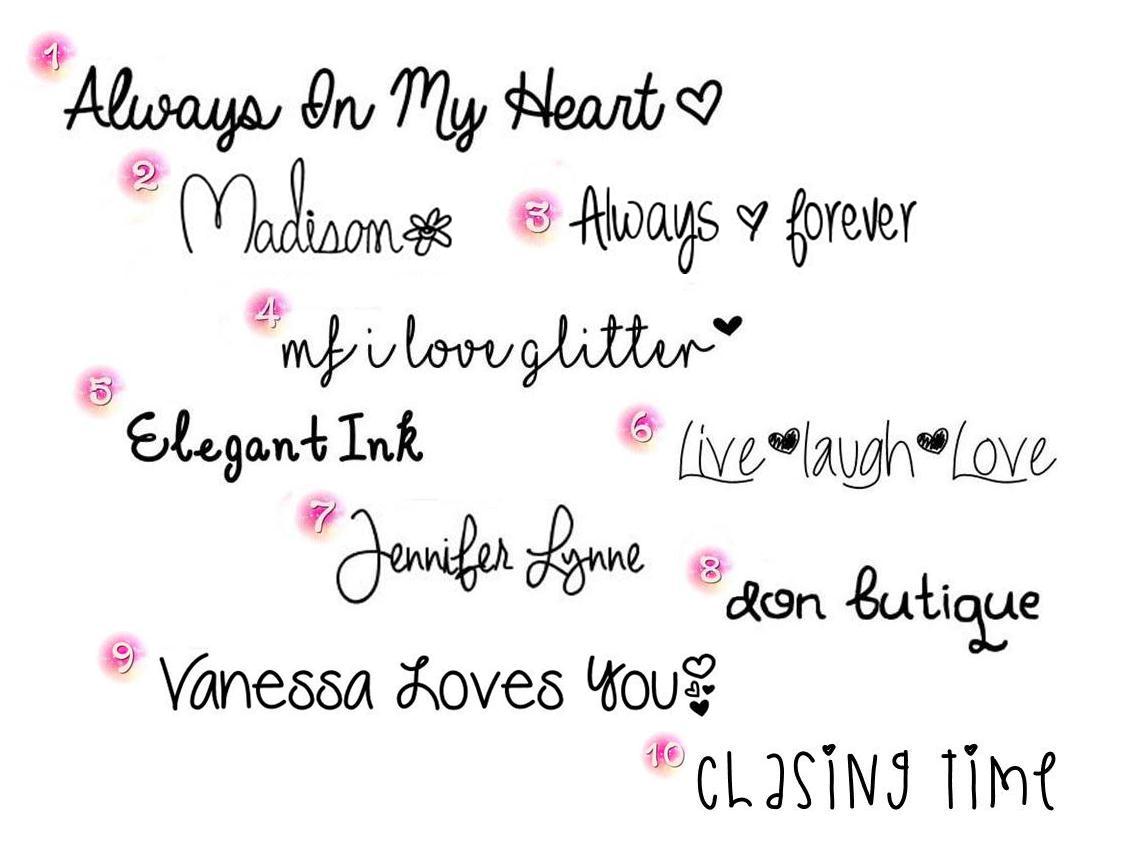 1 Always In My Heart ♡
2 Madison
3 Always ♡ forever
4 mf i love glitter ♥
5 Elegant Ink
6 Live ♥ laugh ♥ Love
7 Jennifer Lynne
8 don butique
9 Vanessa Loves You
10 cLasiNg Time